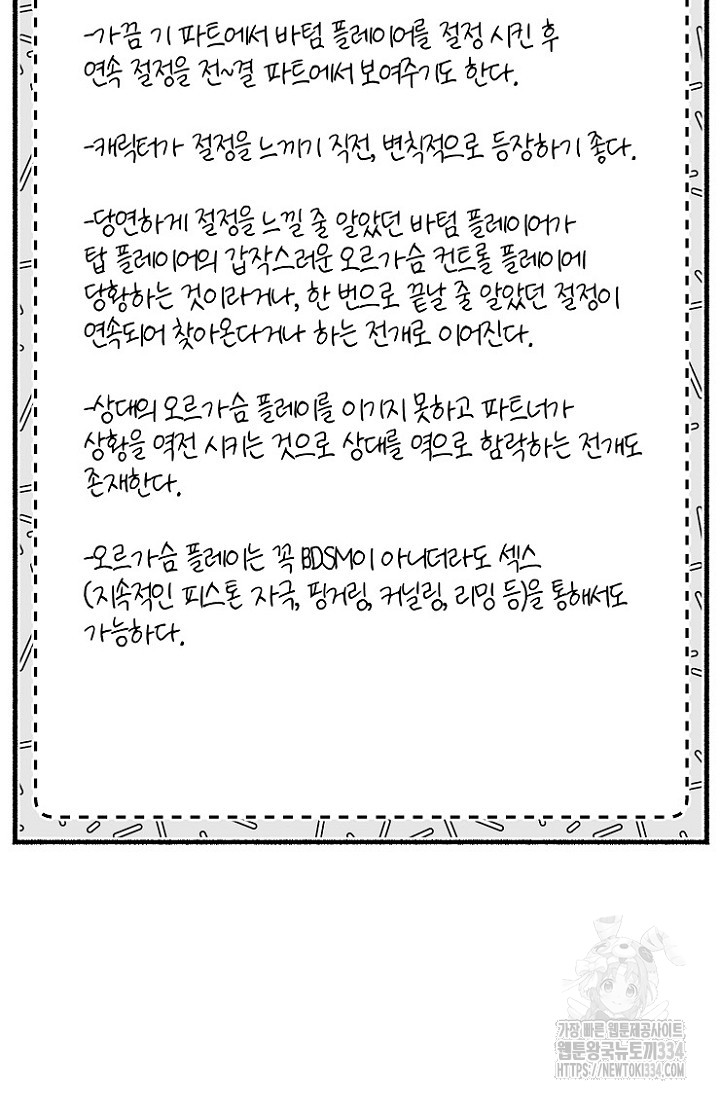 -가끔 기 파트에서 바텀 플레이어를 절정 시킨 후
연속 절정을 전~결 파트에서 보여주기도 한다.
-캐릭터가 절정을 느끼기 직전, 변칙적으로 등장하기 좋다.
-당연하게 절정을 느낄 줄 알았던 바텀 플레이어가
탑 플레이어의 갑작스러운 오르가슴 컨트롤 플레이에
당황하는 것이라거나, 한 번으로 끝날 줄 알았던 절정이
연속되어 찾아온다거나 하는 전개로 이어진다.
-상대의 오르가슴 플레이를 이기지 못하고 파트너가
상황을 역전 시키는 것으로 상대를 역으로 함락하는 전개도
존재한다.
-오르가슴 플레이는 꼭 BDSM이 아니더라도 섹스
(지속적인 피스톤 자극, 핑거링, 커닐링, 리밍 등)을 통해서도
가능하다.
가장 빠른 웹툰제공사이트
웹툰왕국뉴토끼334
HTTPS://NEWTOKI334.COM